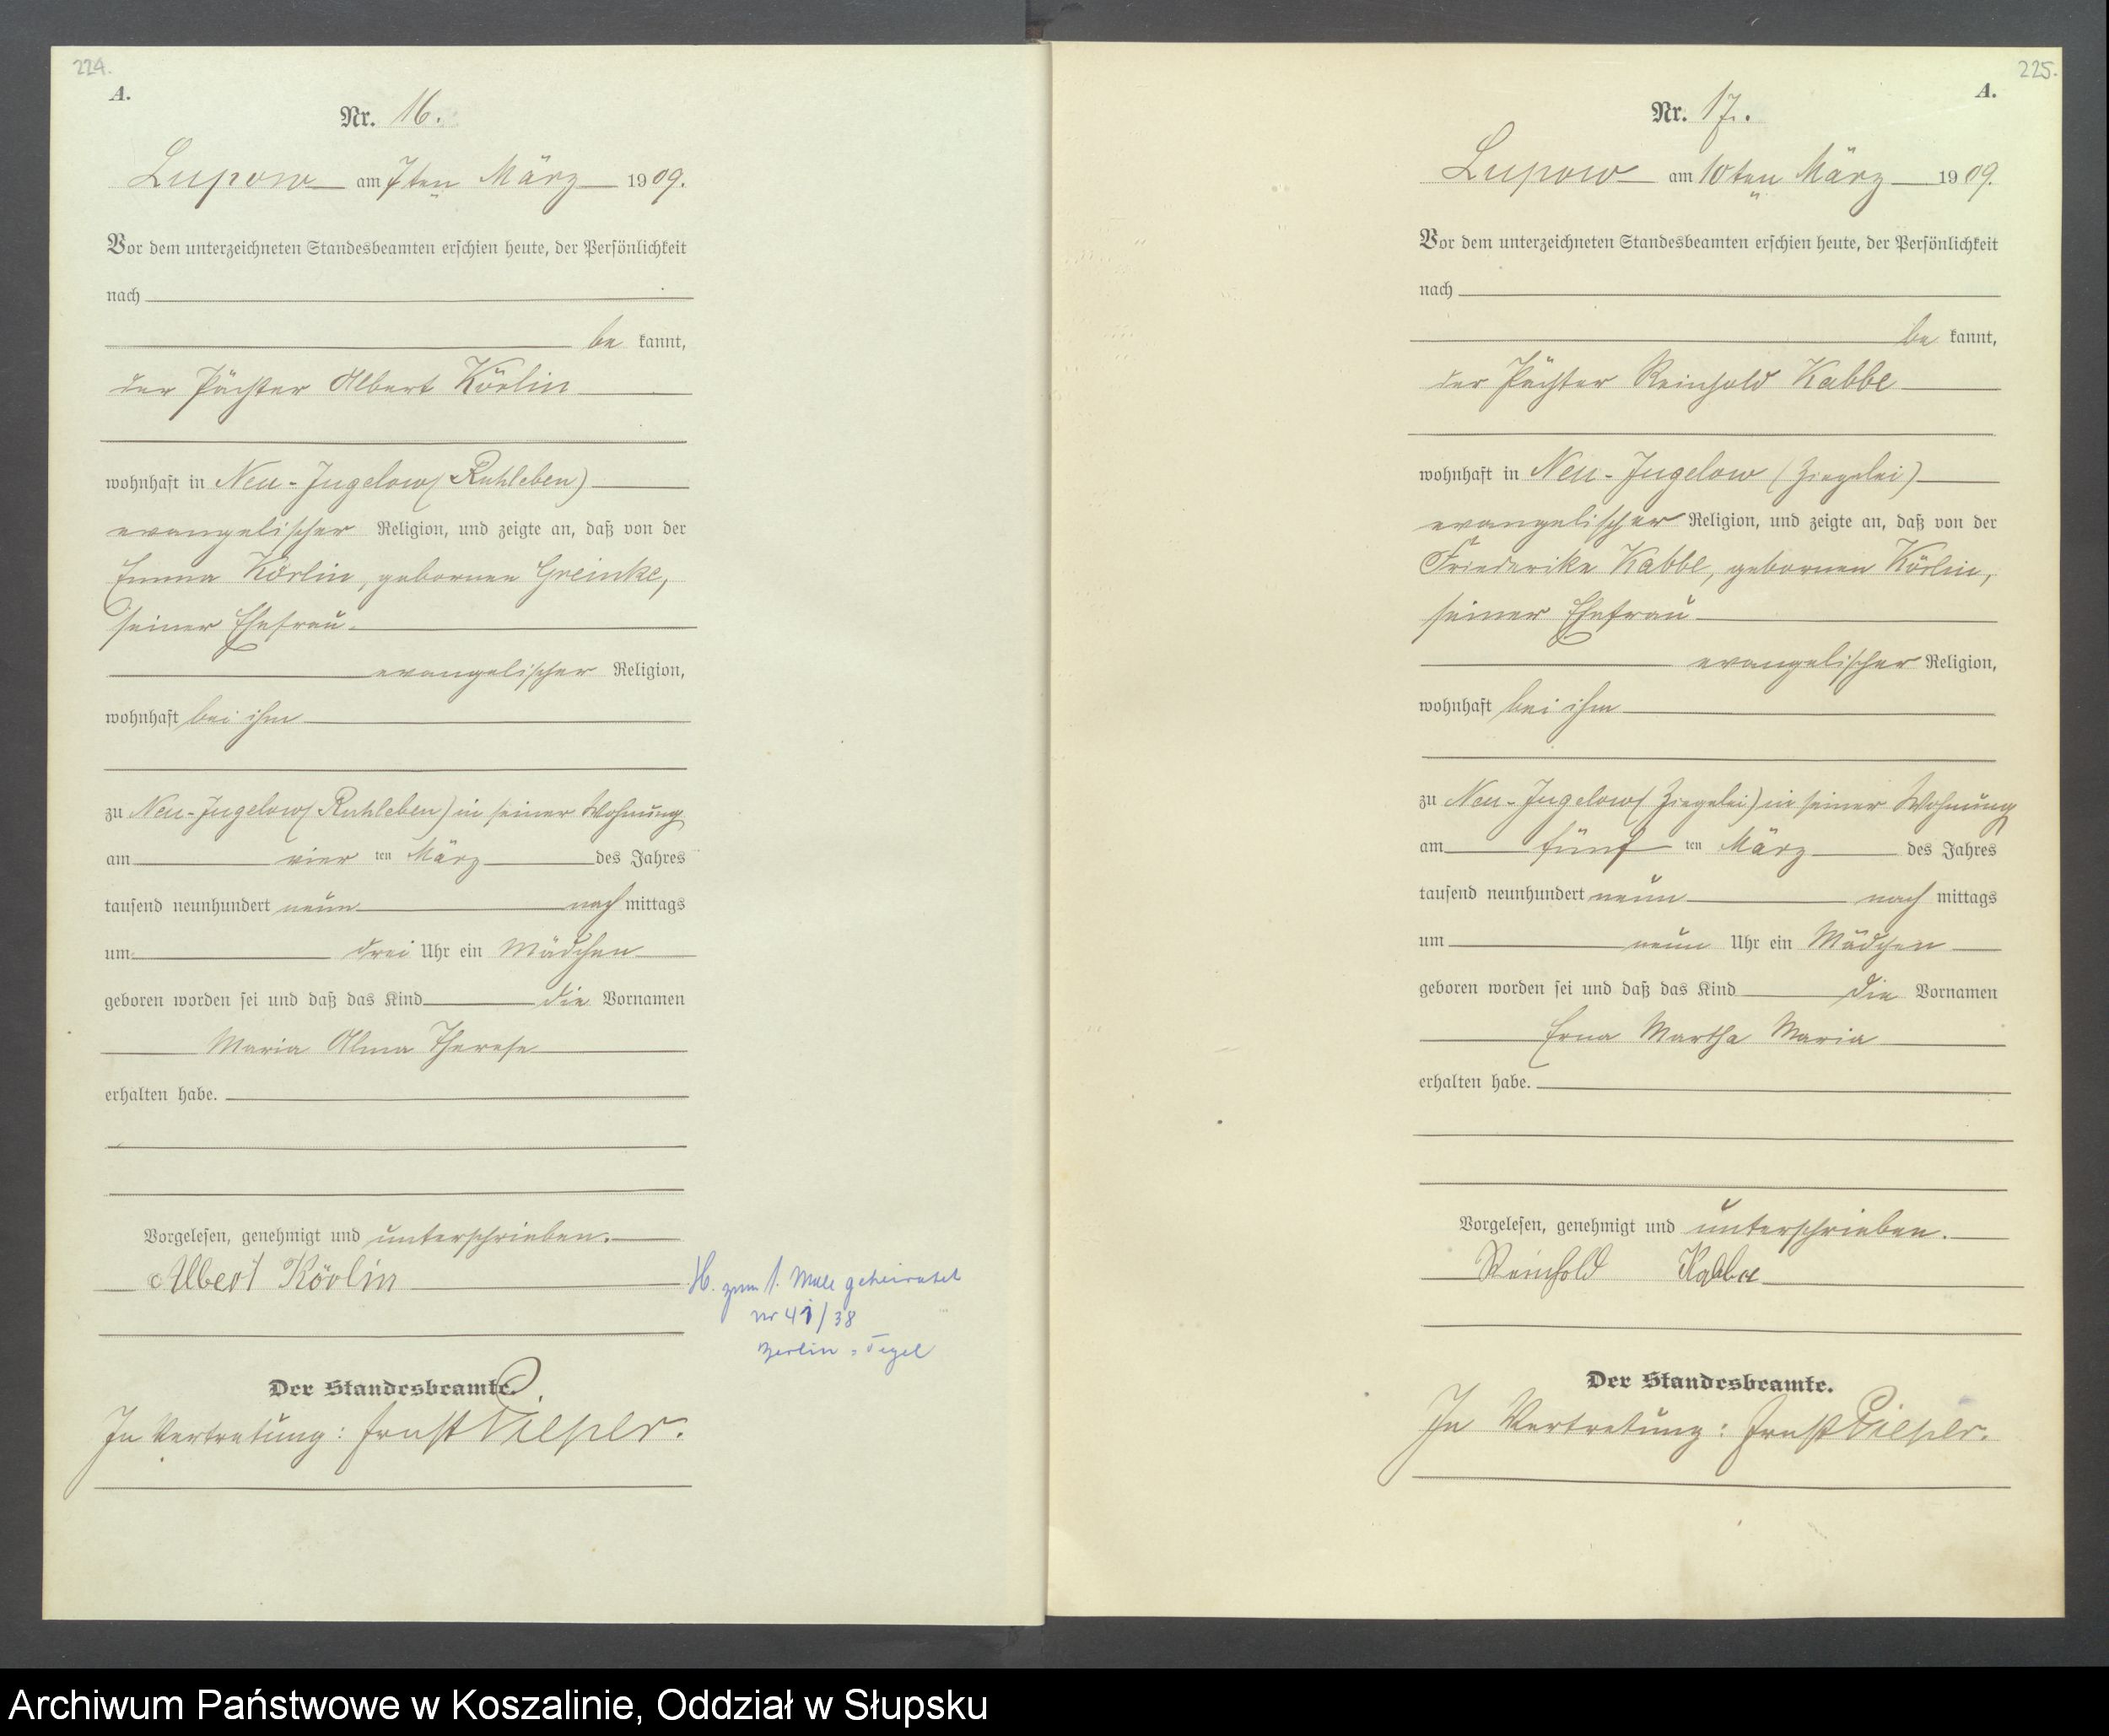 224.
A.
Nr. 16.
Lupow am 7ten März 1909.
Vor dem unterzeichneten Standesbeamten erschien heute, der Persönlichkeit
nach
be kannt,
der Pächter Albert Körlin
wohnhaft in Neu-Jugelow (Ruhleben)
evangelischer Religion, und zeigte an, daß von der
Emma Körlin, gebornen Greinke,
seiner Ehefrau
evangelischer Religion,
wohnhaft bei ihm
zu Neu-Jugelow (Ruhleben) in seiner Wohnung
am vier ten März des Jahres
tausend neunhundert neun nach mittags
um drei Uhr ein Mädchen
geboren worden sei und daß das Kind die Vornamen
Maria Alma Therese
erhalten habe.
Vorgelesen, genehmigt und unterschrieben.
Albert Körlin
H. zum 1. Male geheiratet
nr 41/38
Berlin-Tegel
Der Standesbeamte.
In Vertretung: Ernst Pieper.
225.
A.
Nr. 17.
Lupow am 10ten März 1909.
Vor dem unterzeichneten Standesbeamten erschien heute, der Persönlichkeit
nach
be kannt,
der Pächter Reinhold Kabbe
wohnhaft in Neu-Jugelow (Ziegelei)
evangelischer Religion, und zeigte an, daß von der
Friederike Kabbe, gebornen Körlin,
seiner Ehefrau
evangelischer Religion,
wohnhaft bei ihm
zu Neu-Jugelow (Ziegelei) in seiner Wohnung
am fünf ten März des Jahres
tausend neunhundert neun nach mittags
um neun Uhr ein Mädchen
geboren worden sei und daß das Kind die Vornamen
Erna Martha Maria
erhalten habe.
Vorgelesen, genehmigt und unterschrieben.
Reinhold Kabbe
Der Standesbeamte.
In Vertretung: Ernst Pieper.
Archiwum Państwowe w Koszalinie, Oddział w Słupsku